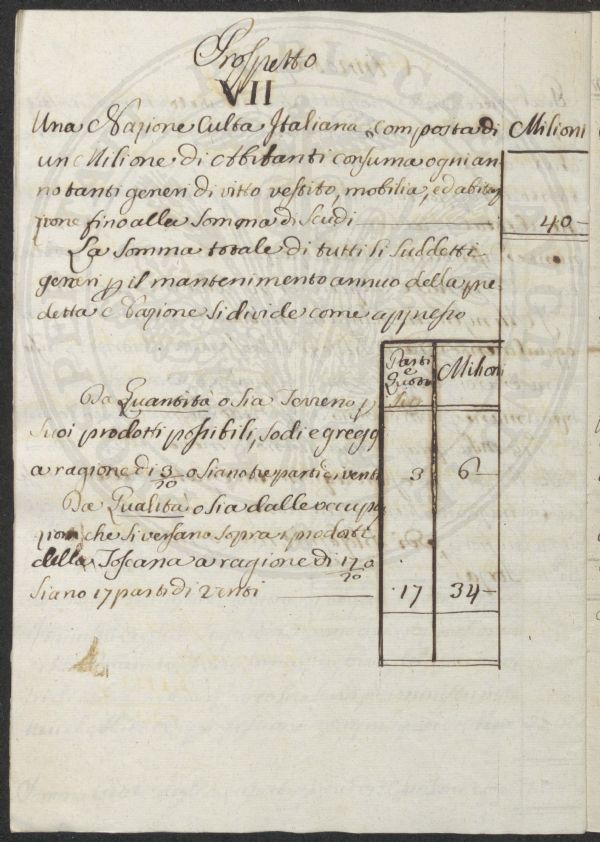 Prospetto
VII
Una Nazione Culta Italiana composta di Milioni
un Milione di Abitanti consuma ogni an
no tanti generi di vitto vestito, mobilia, ed abita
zione fino alla somma di Scudi 40
La somma totale di tutti li suddetti
generi p il mantenimento annuo della pre
detta Nazione si divide come appresso
Parti e Milioni
Da Quantità o sia Terreno p
suoi prodotti possibili, sodi e greggi
a ragione di 3/20 o siano tre parti di venti 3 6
Da Qualità o sia dalle occupa
zioni che si versano sopra i prodotti
della Toscana a ragione di 17/20 o
siano 17 parti di venti 17 34